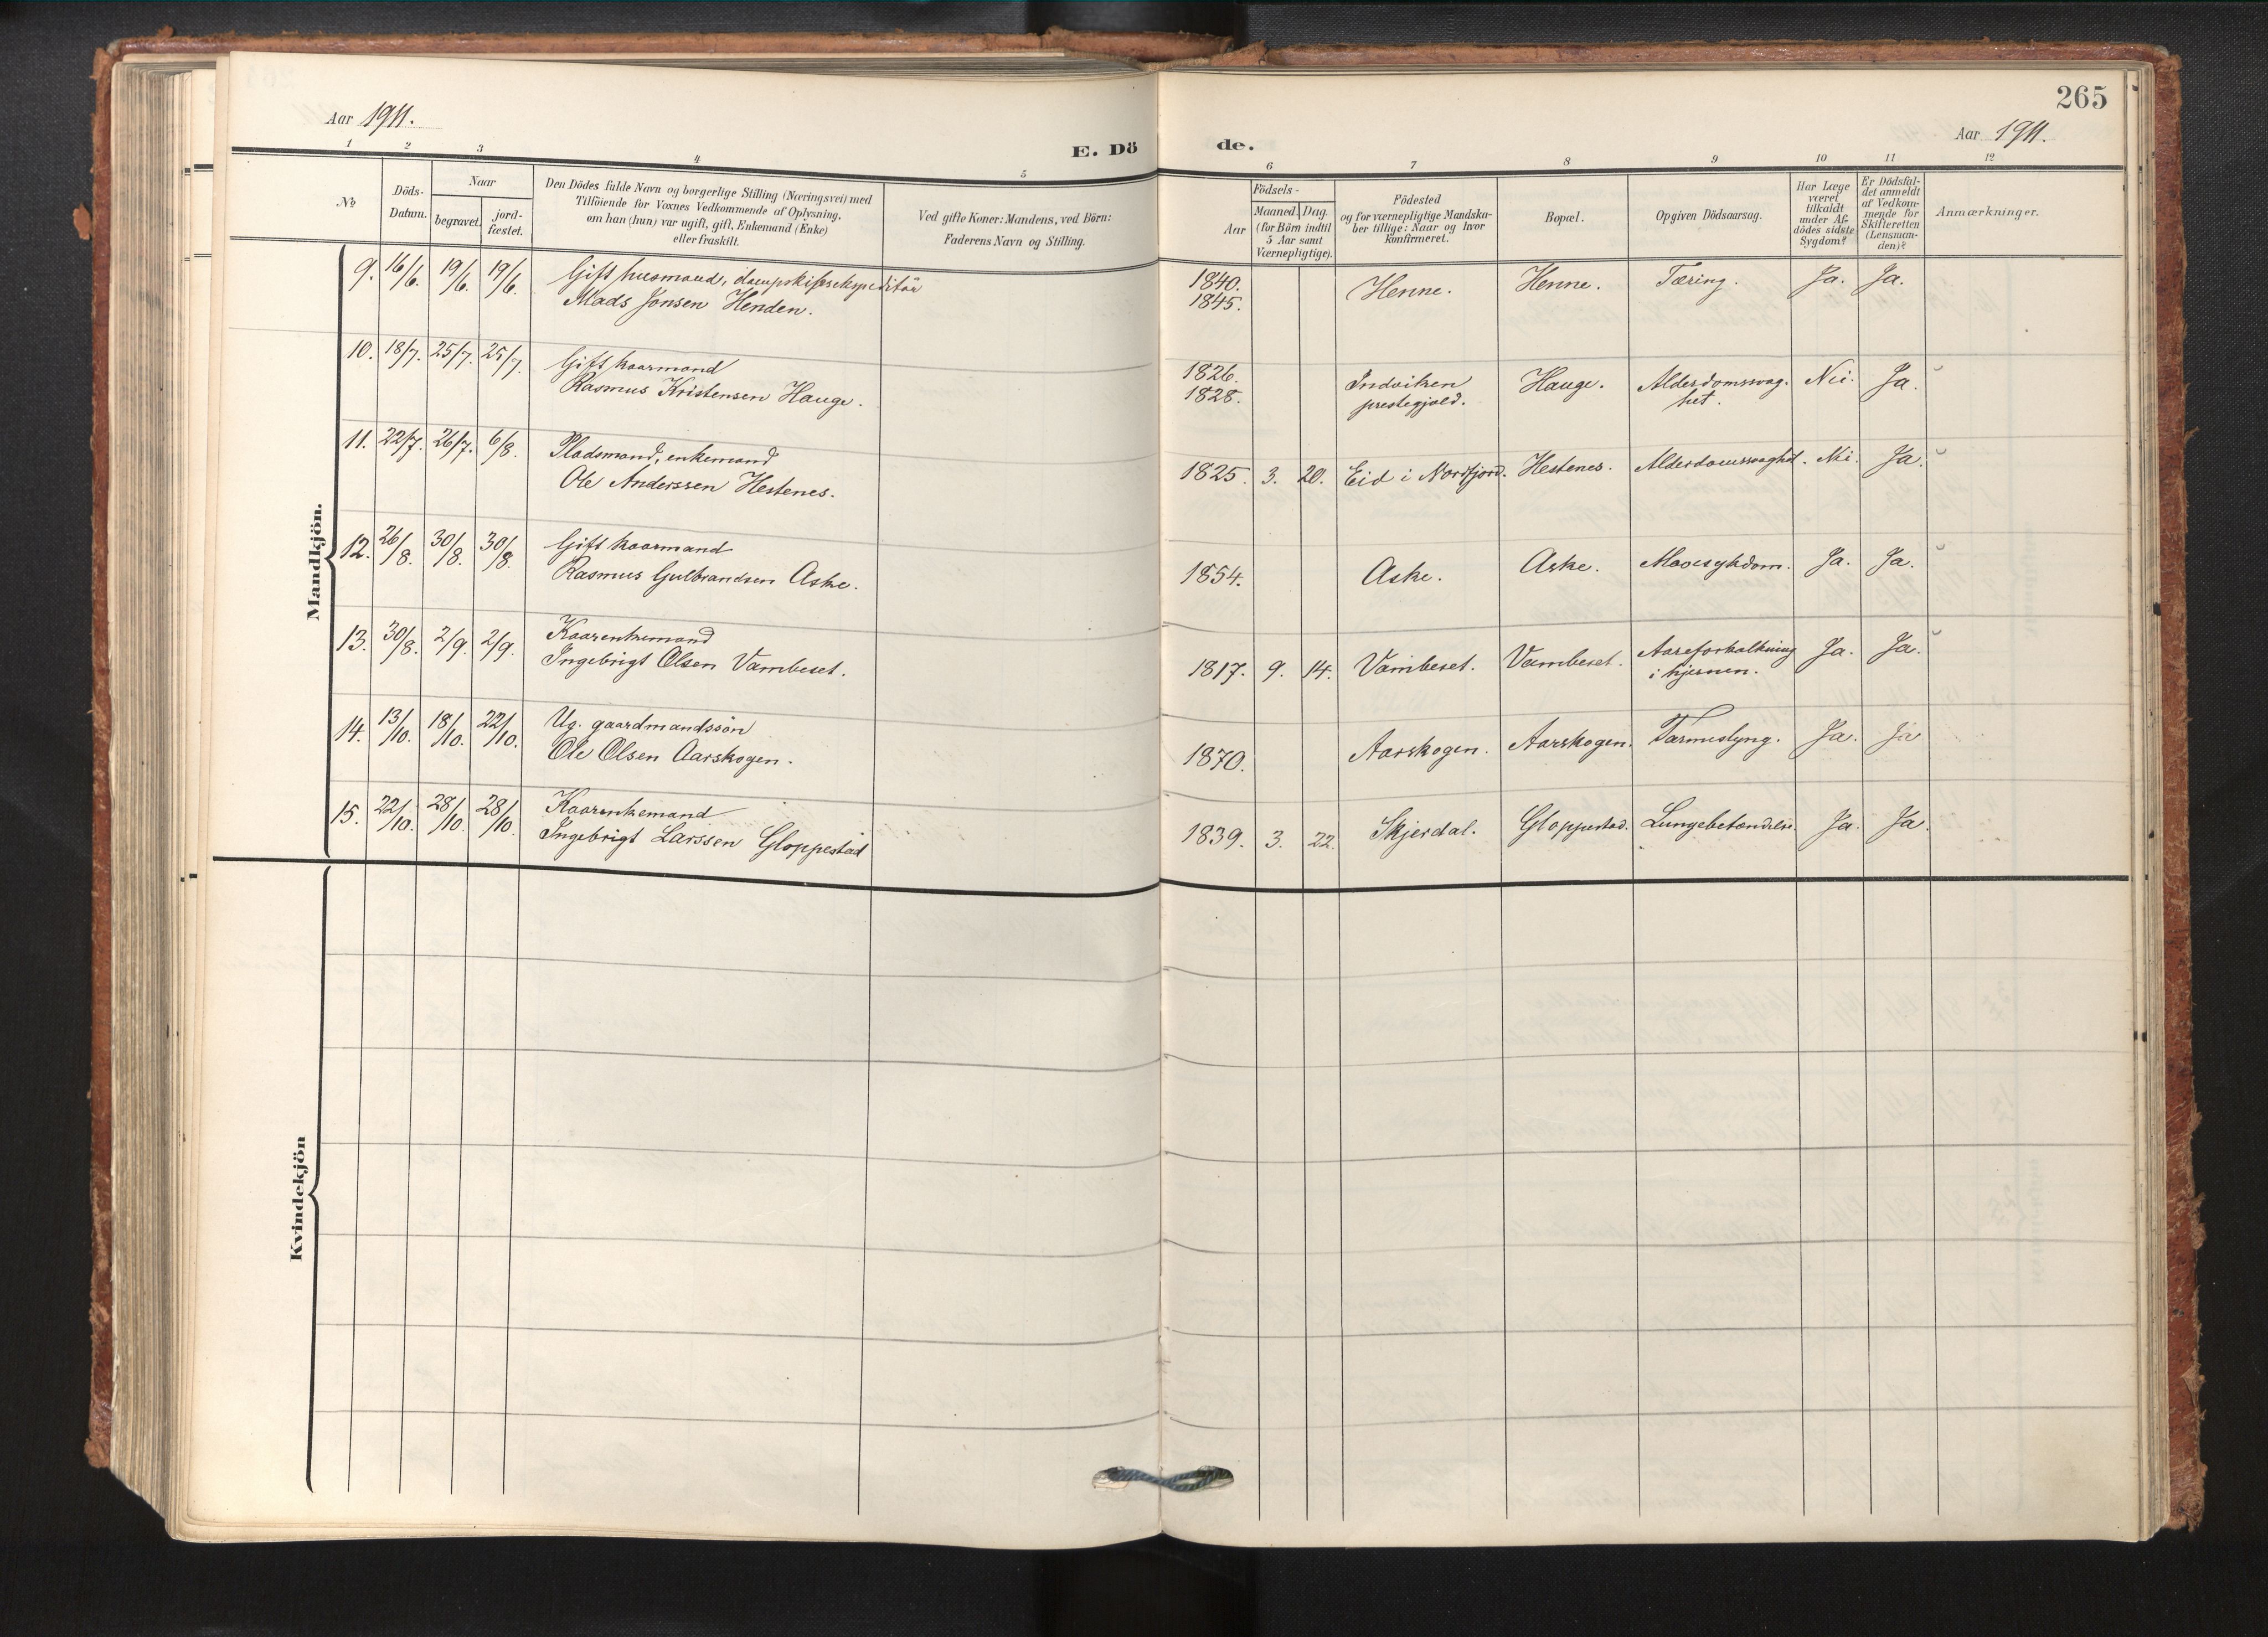 265
Aar 1911.
Aar 1911.
E. Dö de.
1 2 3 4 5 6 7 8 9 10 11 12
№
Döds-
Datum.
Naar
begravet.
jord-
fæstet.
Den Dödes fulde Navn og borgerlige Stilling (Næringsvei) med
Tilföiende for Voxnes Vedkommende af Oplysning,
om han (hun) var ugift, gift, Enkemand (Enke)
eller fraskilt.
Ved gifte Koner: Mandens, ved Börn:
Faderens Navn og Stilling.
Födsels-
Aar
Maaned. Dag.
(for Börn indtil
5 Aar samt
Værnepligtige).
Födested
og for værnepligtige Mandska-
ber tillige: Naar og hvor
konfirmeret.
Bopæl.
Opgiven Dödsaarsag.
Har Læge
været
tilkaldt
under Af-
dödes sidste
Sygdom?
Er Dödsfal-
det anmeldt
af Vedkom-
mende for
Skifteretten
(Lensman-
den)?
Anmærkninger.
Mandkjön.
9. 16/6. 19/6. 19/6. Gift husmand, dampskipsekspeditör
Mads Jonsen Henden.
1840.
1845.
Henne. Henne. Tæring. Ja. Ja.
10. 18/7. 25/7. 25/7. Gift kaarmand
Rasmus Kristensen Hauge.
1826.
1828.
Indviken
prestegjeld.
Hauge. Alderdomssvag-
het.
Nei. Ja.
11. 22/7. 26/7. 6/8. Pladsmand, enkemand
Ole Anderssen Hestenes.
1825. 3. 20. Eid i Nordfjord. Hestenes. Alderdomssvaghet. Nei. Ja.
12. 26/8. 30/8. 30/8. Gift kaarmand
Rasmus Gulbrandsen Aske.
1854. Aske. Aske. Mavesykdom. Ja. Ja.
13. 30/8. 2/9. 2/9. Kaarenkemand
Ingebrigt Olsen Vambeset.
1817. 9. 14. Vambeset. Vambeset. Aareforkalkning
i hjernen.
Ja. Ja.
14. 13/10. 18/10. 22/10. Ug. gaardmandssön
Ole Olsen Aarskogen.
1870. Aarskogen. Aarskogen. Tarmeslyng. Ja. Ja
15. 22/10. 28/10. 28/10. Kaarenkemand
Ingebrigt Larssen Gloppestad
1839. 3. 22. Skjerdal. Gloppestad. Lungebetændelse. Ja. Ja
Kvindekjön